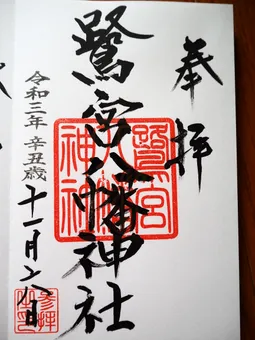 奉拝
鷺宮八幡神社
令和三年 辛丑歳 十一月 日
鷺宮
参拝